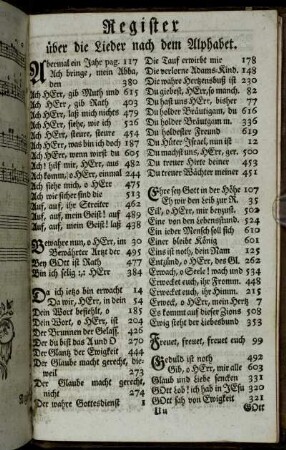 Register
über die Lieder nach dem Alphabet.
Abermal ein Jahr pag. 117
Ach bringe, mein Abba,
den 380
Ach HErr, gib Muth und 615
Ach HErr, gib Rath 403
Ach HErr, laß mich nicht 479
Ach HErr, siehe, wie ich 526
Ach HErr, steure, steure 454
Ach HErr, was bin ich doch 187
Ach HErr, wenn ich du 605
Ach! hilf mir, HErr, aus 482
Ach komm, o HErr, einmal 244
Ach siehe mich, o HErr 475
Ach wie sicher sind die 513
Auf, auf, ihr Streiter 462
Auf, auf, mein Geist! auf 489
Auf, auf, mein Geist! laß 438
Bewahre nun, o HErr, im 30
Bewährter Arzt der 495
Bey GOtt ist Rath 477
Bin ich selig, HErr 384
Da ich jetzo bin erwacht 14
Da wir, HErr, in dein 54
Dein Wort bestehet, o 185
Dein Wort, o HErr, ist 204
Der Brunnen der Gelass. 426
Der du bist das A und O 270
Der Glantz der Ewigkeit 444
Der Glaube macht gerecht, die-
weil 273
Der Glaube macht gerecht,
nicht 274
Der wahre Gottesdienst 1
Die Tauf erwirbt mir 178
Die verlorne Adams-Kind. 148
Die wahre Hertzensbuß ist 230
Du giebest, HErr, so manch. 82
Du hast uns HErr, bisher 77
Du holder Bräutigam, du 616
Du holder Bräutigam m. 336
Du holdester Freund 619
Du Hüter Israel, nun ist 12
Du machst uns, HErr, ger. 100
Du treuer Hirte deiner 453
Du treuer Wächter meiner 451
Ehre sey Gott in der Höhe 107
Eh wir den Leib zur R. 35
Eil, o HErr, mir beyzust. 502
Eine von den Lebensstund. 534
Ein jeder Mensch soll sich 610
Einer bleibt König 601
Eins ist noth, dein Nam 125
Entzünd, o HErr, des Gl. 260
Erwach, o Seele! wach und 534
Erwecke euch, ihr Fromm. 448
Erwecket euch, ihr Himm. 215
Erweck, o HErr, mein Hertz 7
Es kommt auf dieser Zions 508
Ewig steht der Liebesbund 353
Freuet, freuet, freuet euch 99
Geduld ist noth 492
Gib, o HErr, mir alle 603
Glaub und Liebe stecken 331
GOtt lob! ich hab in JEsu 320
GOtt sah von Ewigkeit 321
Uu GOtt